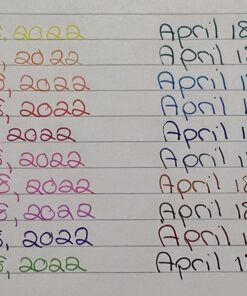 8, 2022 April 18
, 2022 April 1
8, 2022 April 18
8, 2022 April 18
, 2022 April 1
8, 2022 April 1
8, 2022 April 18
8, 2022 April 18
8, 2022 April 1
8, 2022 April 18